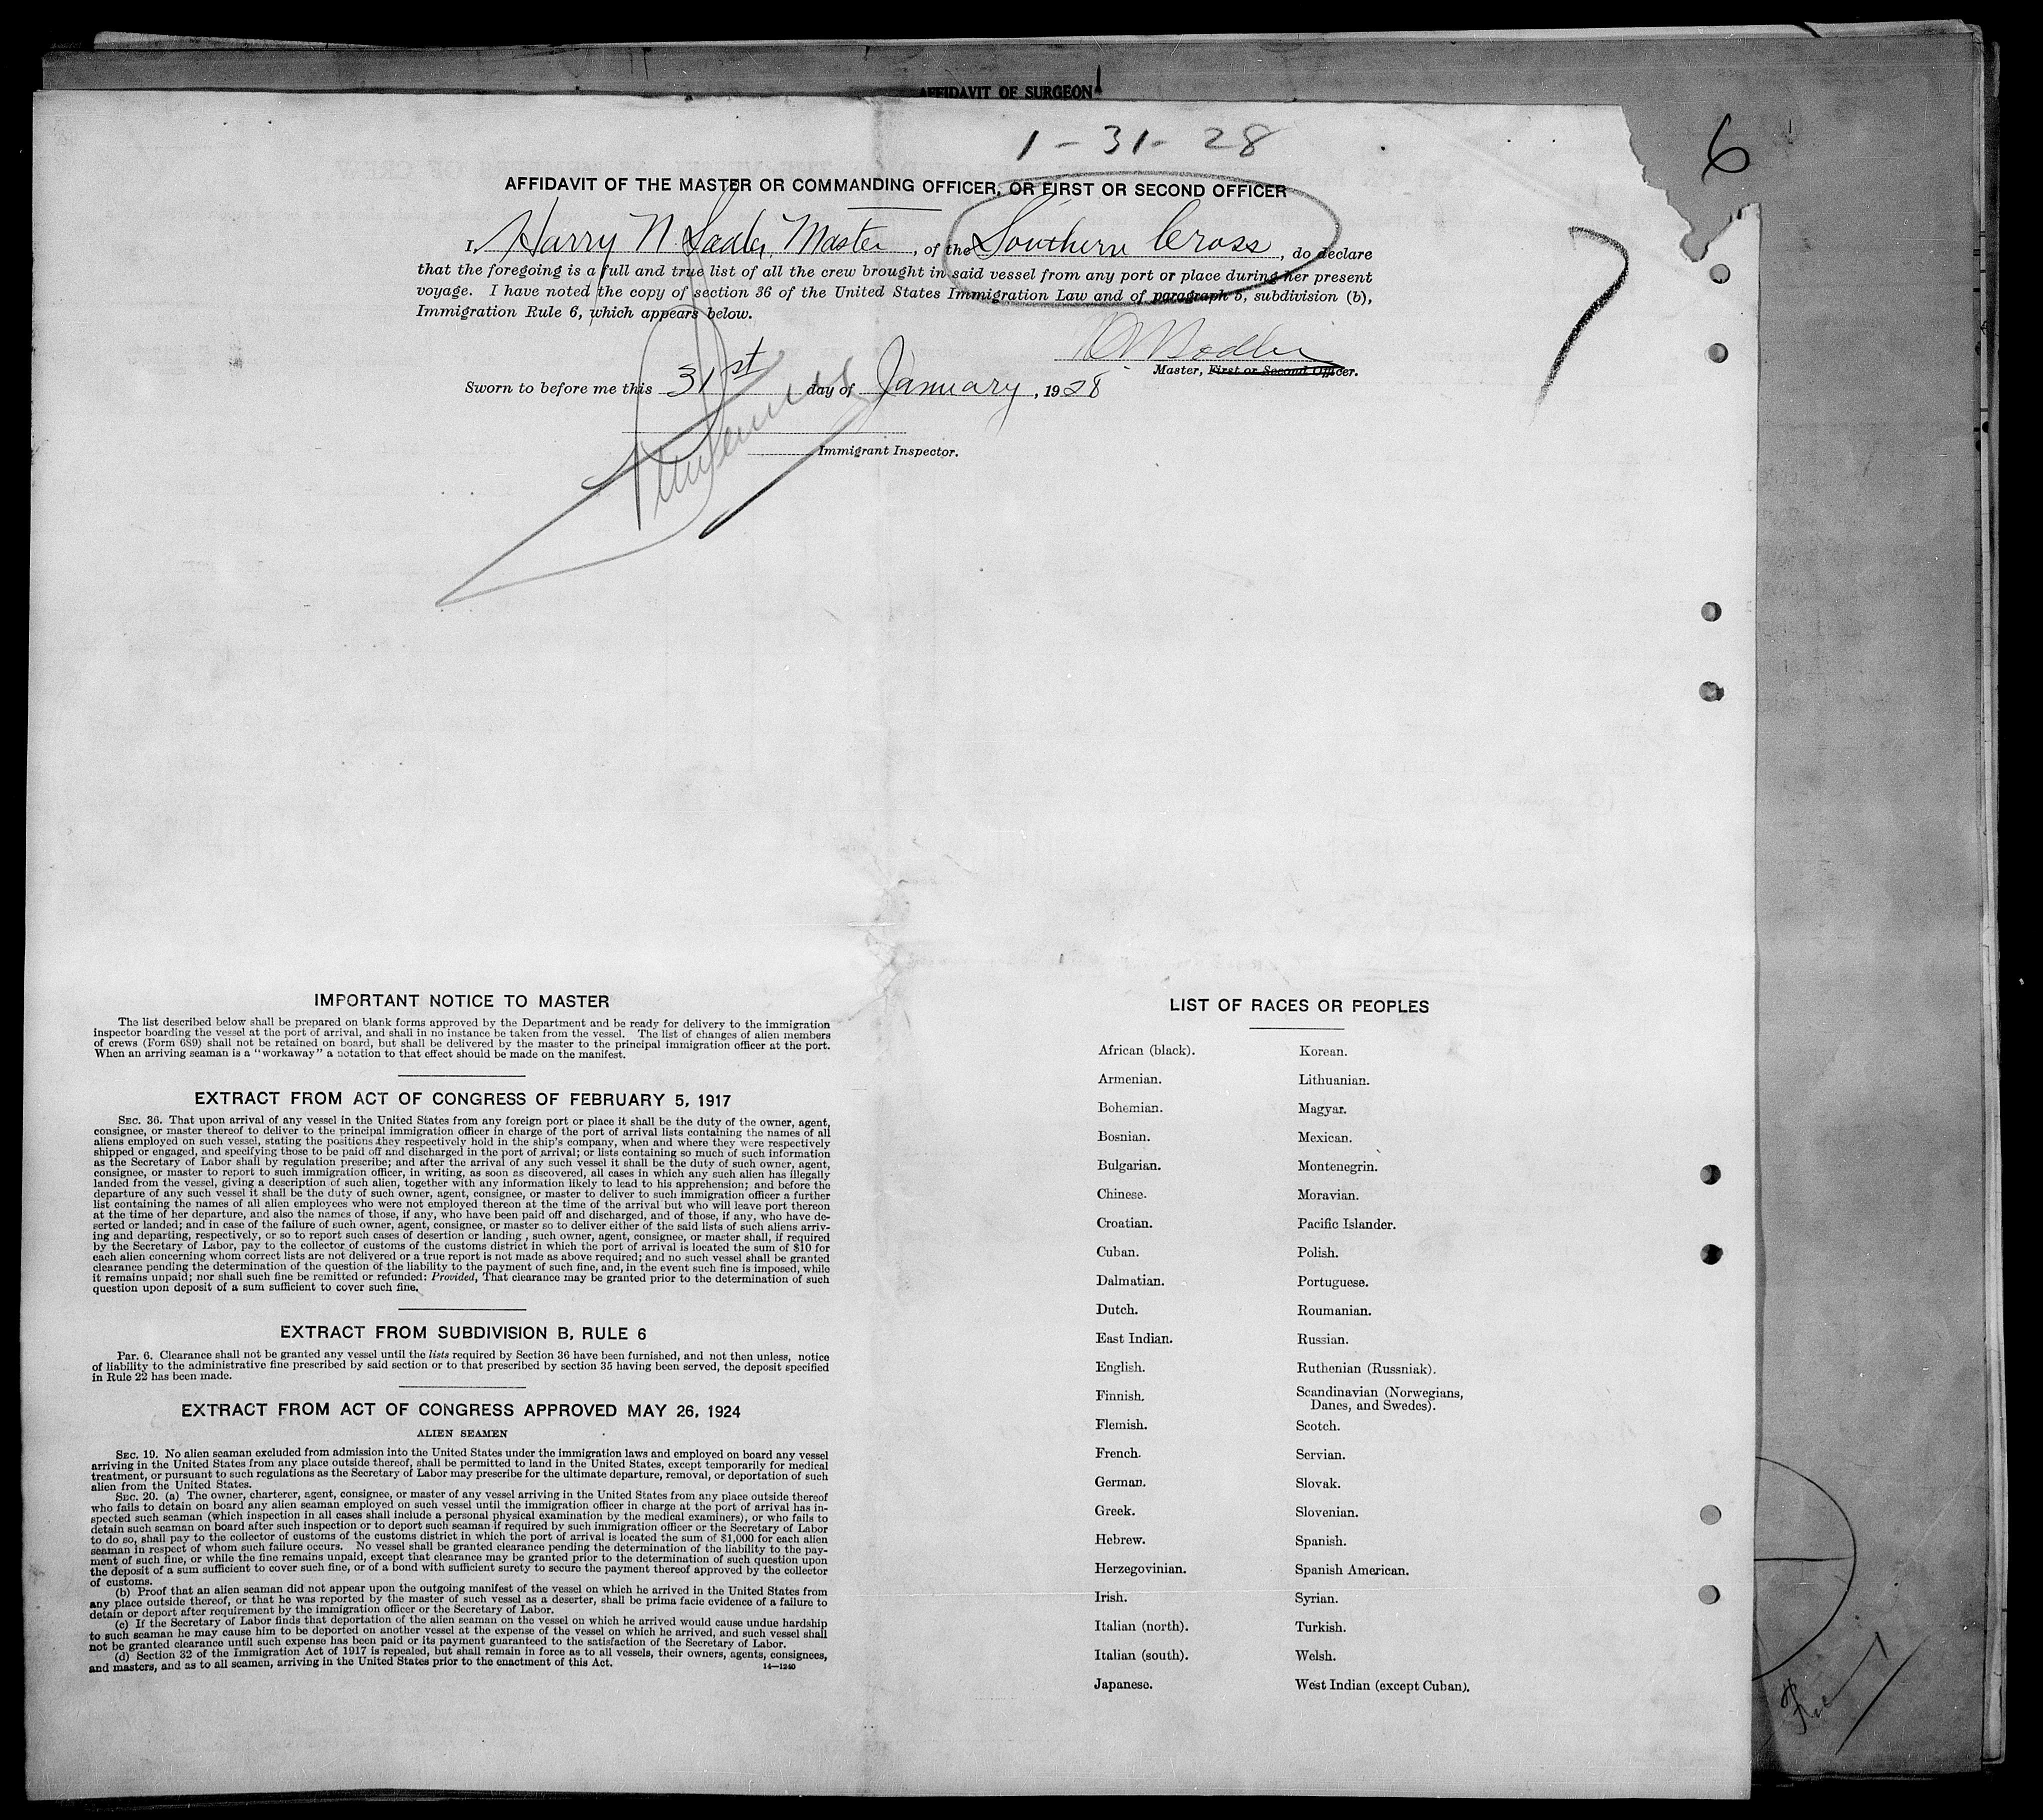 AFFIDAVIT OF SURGEON
1 - 31 - 28
6
AFFIDAVIT OF THE MASTER OR COMMANDING OFFICER, OR FIRST OR SECOND OFFICER
7
I, Harry N Sadler, Master, of the Southern Cross, do declare
that the foregoing is a full and true list of all the crew brought in said vessel from any port or place during her present
voyage. I have noted the copy of section 36 of the United States Immigration Law and of paragraph 5, subdivision (b),
Immigration Rule 6, which appears below.
Master, First or Second Officer.
Sworn to before me this 31st day of January, 1928
Immigrant Inspector.
IMPORTANT NOTICE TO MASTER
The list described below shall be prepared on blank forms approved by the Department and be ready for delivery to the immigration
inspector boarding the vessel at the port of arrival, and shall in no instance be taken from the vessel. The list of changes of alien members
of crews (Form 689) shall not be retained on board, but shall be delivered by the master to the principal immigration officer at the port.
When an arriving seaman is a "workaway" a notation to that effect should be made on the manifest.
EXTRACT FROM ACT OF CONGRESS OF FEBRUARY 5, 1917
SEC. 36. That upon arrival of any vessel in the United States from any foreign port or place it shall be the duty of the owner, agent,
consignee, or master thereof to deliver to the principal immigration officer in charge of the port of arrival lists containing the names of all
aliens employed on such vessel, stating the positions they respectively hold in the ship's company, when and where they were respectively
shipped or engaged, and specifying those to be paid off and discharged in the port of arrival; or lists containing so much of such information
as the Secretary of Labor shall by regulation prescribe; and after the arrival of any such vessel it shall be the duty of such owner, agent,
consignee, or master to report to such immigration officer, in writing, as soon as discovered, all cases in which any such alien has illegally
landed from the vessel, giving a description of such alien, together with any information likely to lead to his apprehension; and before the
departure of any such vessel it shall be the duty of such owner, agent, consignee, or master to deliver to such immigration officer a further
list containing the names of all alien employees who were not employed thereon at the time of the arrival but who will leave port thereon
at the time of her departure, and also the names of those, if any, who have been paid off and discharged, and of those, if any, who have de-
serted or landed; and in case of the failure of such owner, agent, consignee, or master so to deliver either of the said lists of such aliens arriv-
ing and departing, respectively, or so to report such cases of desertion or landing , such owner, agent, consignee, or master shall, if required
by the Secretary of Labor, pay to the collector of customs of the customs district in which the port of arrival is located the sum of $10 for
each alien concerning whom correct lists are not delivered or a true report is not made as above required; and no such vessel shall be granted
clearance pending the determination of the question of the liability to the payment of such fine, and, in the event such fine is imposed, while
it remains unpaid; nor shall such fine be remitted or refunded: Provided, That clearance may be granted prior to the determination of such
question upon deposit of a sum sufficient to cover such fine.
EXTRACT FROM SUBDIVISION B, RULE 6
PAR. 6. Clearance shall not be granted any vessel until the lists required by Section 36 have been furnished, and not then unless, notice
of liability to the administrative fine prescribed by said section or to that prescribed by section 35 having been served, the deposit specified
in Rule 22 has been made.
EXTRACT FROM ACT OF CONGRESS APPROVED MAY 26, 1924
ALIEN SEAMEN
SEC. 19. No alien seaman excluded from admission into the United States under the immigration laws and employed on board any vessel
arriving in the United States from any place outside thereof, shall be permitted to land in the United States, except temporarily for medical
treatment, or pursuant to such regulations as the Secretary of Labor may prescribe for the ultimate departure, removal, or deportation of such
alien from the United States.
SEC. 20. (a) The owner, charterer, agent, consignee, or master of any vessel arriving in the United States from any place outside thereof
who fails to detain on board any alien seaman employed on such vessel until the immigration officer in charge at the port of arrival has in-
spected such seaman (which inspection in all cases shall include a personal physical examination by the medical examiners), or who fails to
detain such seaman on board after such inspection or to deport such seaman if required by such immigration officer or the Secretary of Labor
to do so, shall pay to the collector of customs of the customs district in which the port of arrival is located the sum of $1,000 for each alien
seaman in respect of whom such failure occurs. No vessel shall be granted clearance pending the determination of the liability to the pay-
ment of such fine, or while the fine remains unpaid, except that clearance may be granted prior to the determination of such question upon
the deposit of a sum sufficient to cover such fine, or of a bond with sufficient surety to secure the payment thereof approved by the collector
of customs.
(b) Proof that an alien seaman did not appear upon the outgoing manifest of the vessel on which he arrived in the United States from
any place outside thereof, or that he was reported by the master of such vessel as a deserter, shall be prima facie evidence of a failure to
detain or deport after requirement by the immigration officer or the Secretary of Labor.
(c) If the Secretary of Labor finds that deportation of the alien seaman on the vessel on which he arrived would cause undue hardship
to such seaman he may cause him to be deported on another vessel at the expense of the vessel on which he arrived, and such vessel shall
not be granted clearance until such expense has been paid or its payment guaranteed to the satisfaction of the Secretary of Labor.
(d) Section 32 of the Immigration Act of 1917 is repealed, but shall remain in force as to all vessels, their owners, agents, consignees,
and masters, and as to all seamen, arriving in the United States prior to the enactment of this Act.
14—1240
LIST OF RACES OR PEOPLES
African (black).
Armenian.
Bohemian.
Bosnian.
Bulgarian.
Chinese.
Croatian.
Cuban.
Dalmatian.
Dutch.
East Indian.
English.
Finnish.
Flemish.
French.
German.
Greek.
Hebrew.
Herzegovinian.
Irish.
Italian (north).
Italian (south).
Japanese.
Korean.
Lithuanian.
Magyar.
Mexican.
Montenegrin.
Moravian.
Pacific Islander.
Polish.
Portuguese.
Roumanian.
Russian.
Ruthenian (Russniak).
Scandinavian (Norwegians,
Danes, and Swedes).
Scotch.
Servian.
Slovak.
Slovenian.
Spanish.
Spanish American.
Syrian.
Turkish.
Welsh.
West Indian (except Cuban).